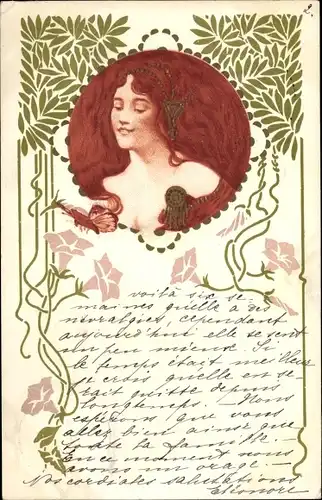 2.
voilà six se-
maines qu'elle a des
névralgies, cependant
aujourd'hui elle se sent
un peu mieux. Si
le temps était meilleur
je crois qu'elle en se-
rait quitte depuis
longtemps. Nous
espérons que vous
allez bien ainsi que
toute la famille.
En ce moment nous
avons un orage.
Nos cordiales salutations
Eléonore